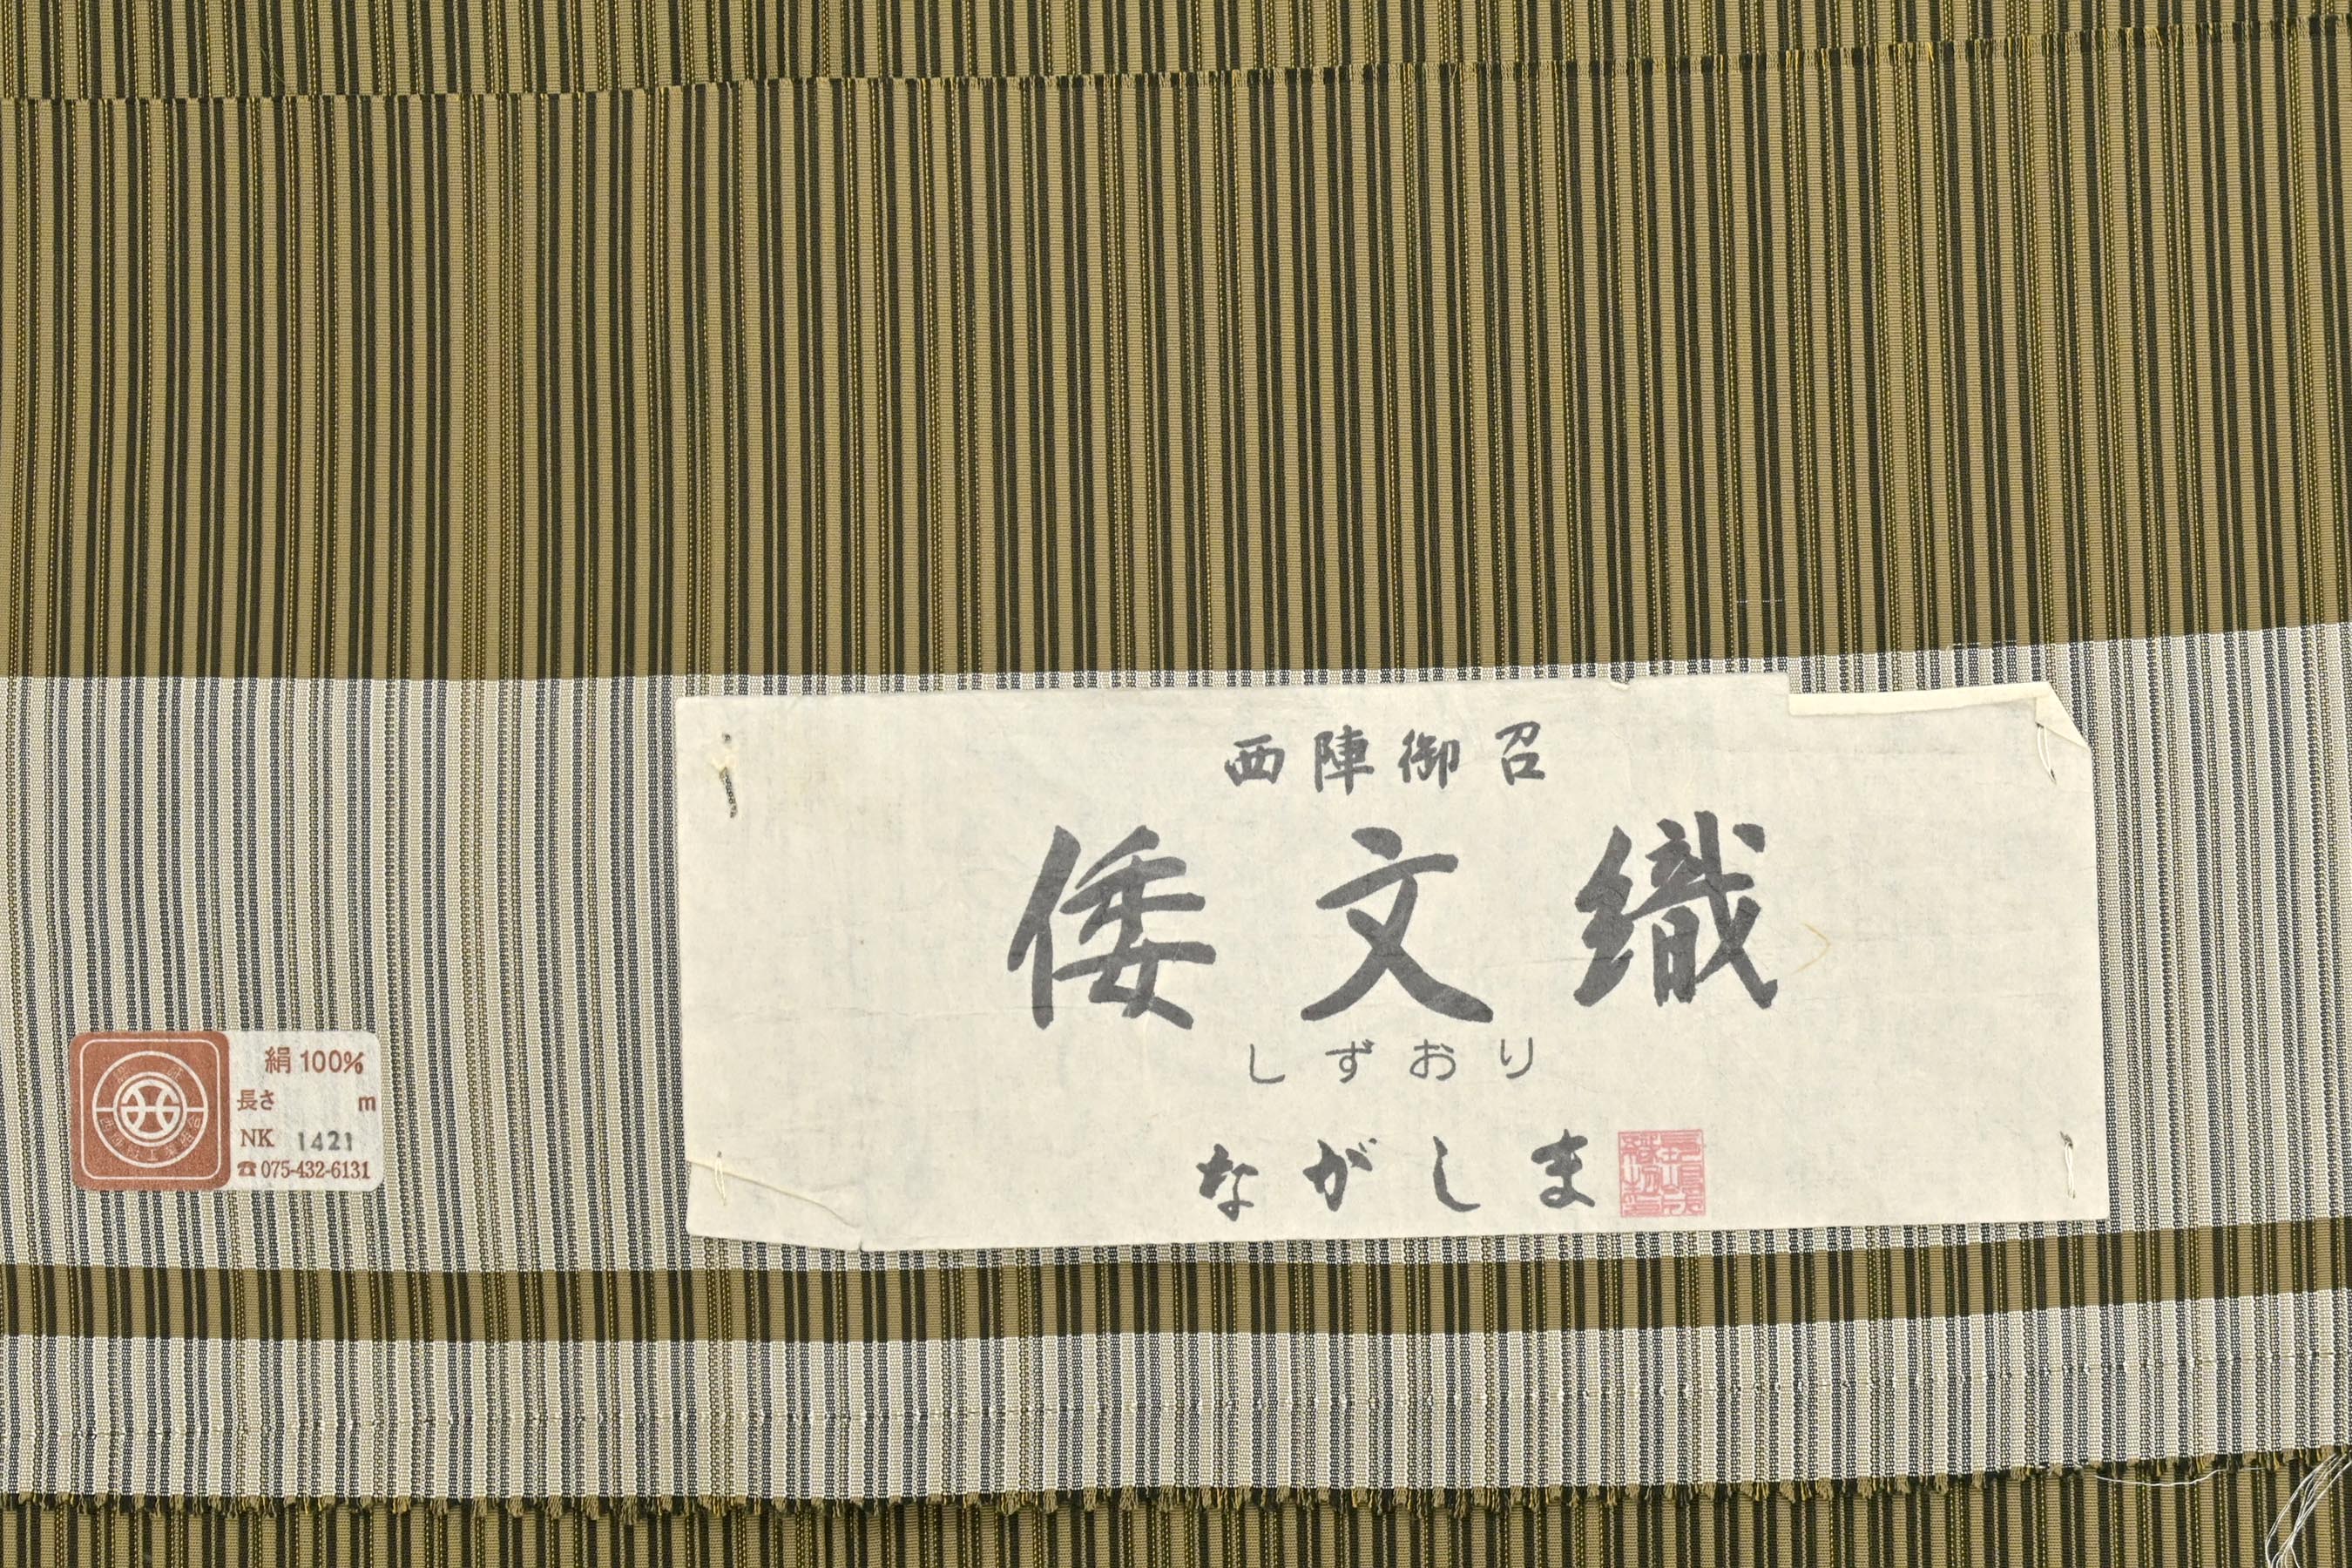 西陣御召
倭文織
しずおり
ながしま
絹 100%
長さ m
NK 1421
☎ 075-432-6131